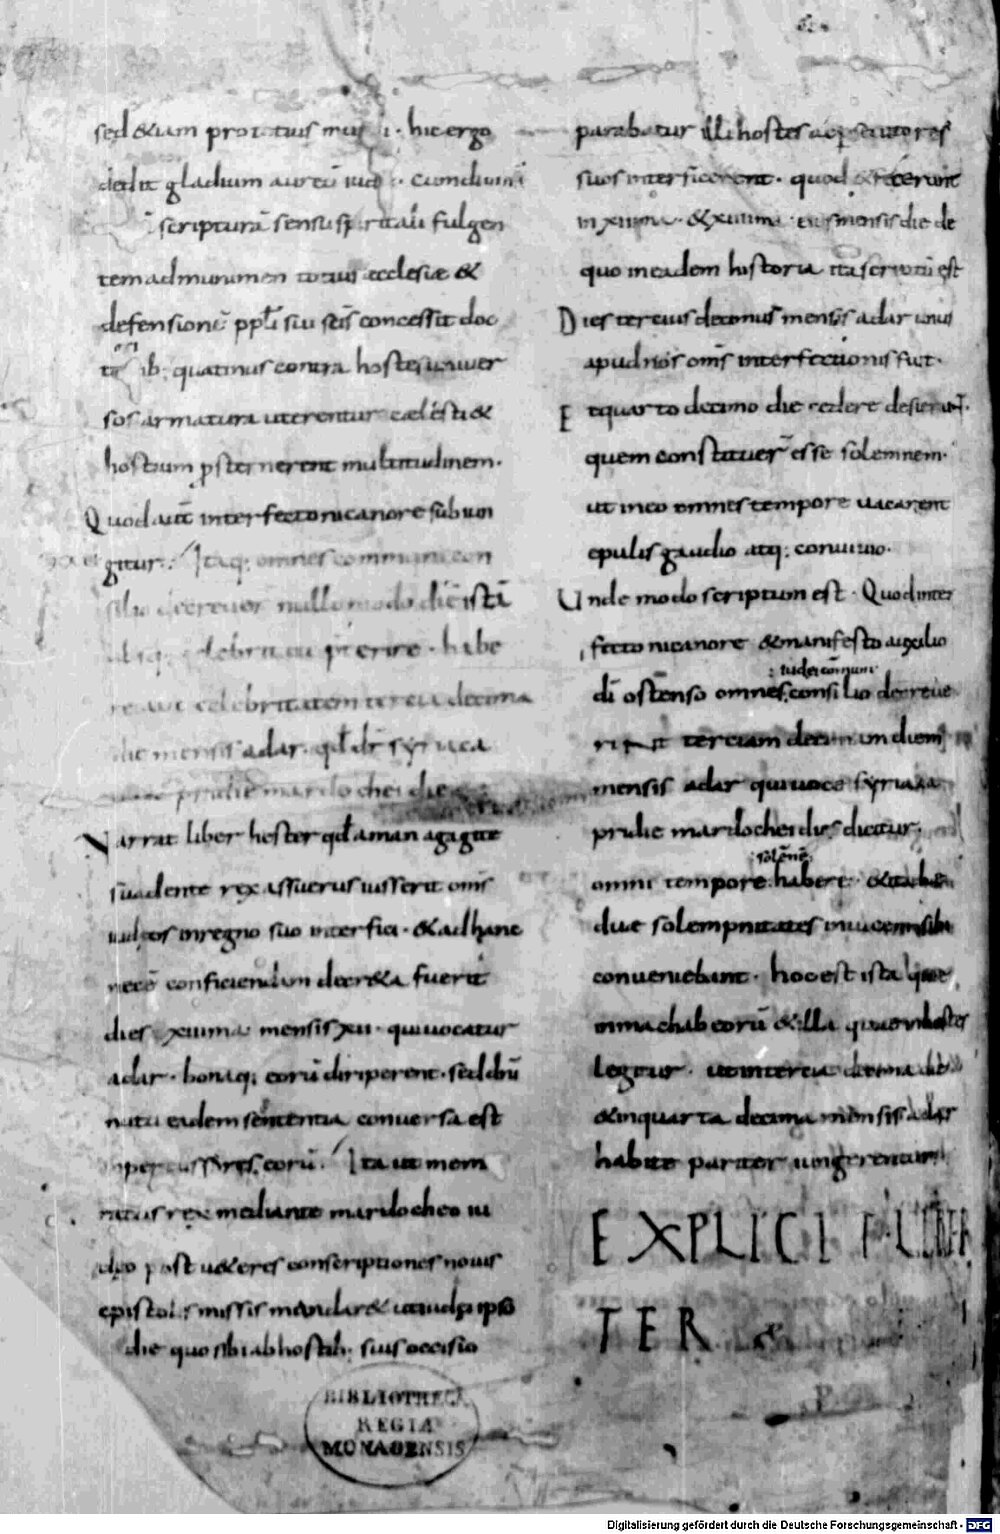 sed &iam pro totius mu · hic ergo
dedit gladium aureū iud · cum diuini
scripturā sensu spiritali fulgen
tem ad munimen totius ecclesiæ &
defensionē pp̄li sui sc̄is concessit doc
ib; quatinus contra hostes uniuer
sos armatura uterentur cælesti &
hostium ꝓsternerent multitudinem·
Quod aut̄ interfecto nicanore subiun
gitur· Itaq; omnes communi con
silio decreuer̄ nullo modo diē istū
absq; celebritate p̄terire· habe
re aut̄ celebritatem tercia decima
die mensis adar· qd̄ dr̄ syriaca
uoce pridie mardochei die
Narrat liber hester qd̄ aman agagite
suadente rex assuerus iusserit om̄s
iudeos in regno suo interfici· & ad hanc
necē conficiendam decr&a fuerit
dies xiiima mensis xii· qui uocatur
adar· bonaq; eorū diriperent· sed dn̄i
nutu eadem sententia conuersa est
in eorū· Ita ut mem
ratus rex mediante mardocheo iu
deo post u&eres conscriptiones nouis
epistolis missis mandar& ut iudei ipso
die quo sibi ab hostib; suis occisio
parabatur illi hostes ac ꝑsecutores
suos interficerent· quod & fecerunt
in xiiima· & xiiiima· eius mensis die de
quo in eadem historia ita scriptū est
Dies tercius decimus mensis adar unus
apud n̄os om̄s interfectionis fuit·
Et quarto decimo die cedere desierunt·
quem constituer̄ esse solemnem·
ut in eo omnes tempore uacarent
epulis gaudio atq; conuiuio·
Unde modo scriptum est· Quod inter
fecto nicanore & manifesto auxilio
: iudei cōmuni
dī ostenso omnes; consilio decreue
runt terciam decimam diem
mensis adar qui uoce syriaca
pridie mardochei dies dicitur·
solēnē
omni tempore habere· & ita hæ
duæ solempnitates inuicem sibi
conueniebant· hoc est ista quæ
in machabeorū & illa quæ in hester
legitur· ut in tercia decima die
& in quarta decima mensis adar
habite pariter iungerentur
EXPLICIT LIBER
TER
BIBLIOTHECA
REGIA
MONACENSIS
Digitalisierung gefördert durch die Deutsche Forschungsgemeinschaft - DFG